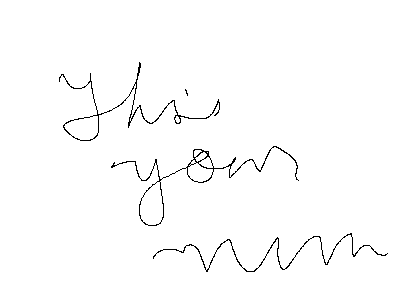 This
your
mum